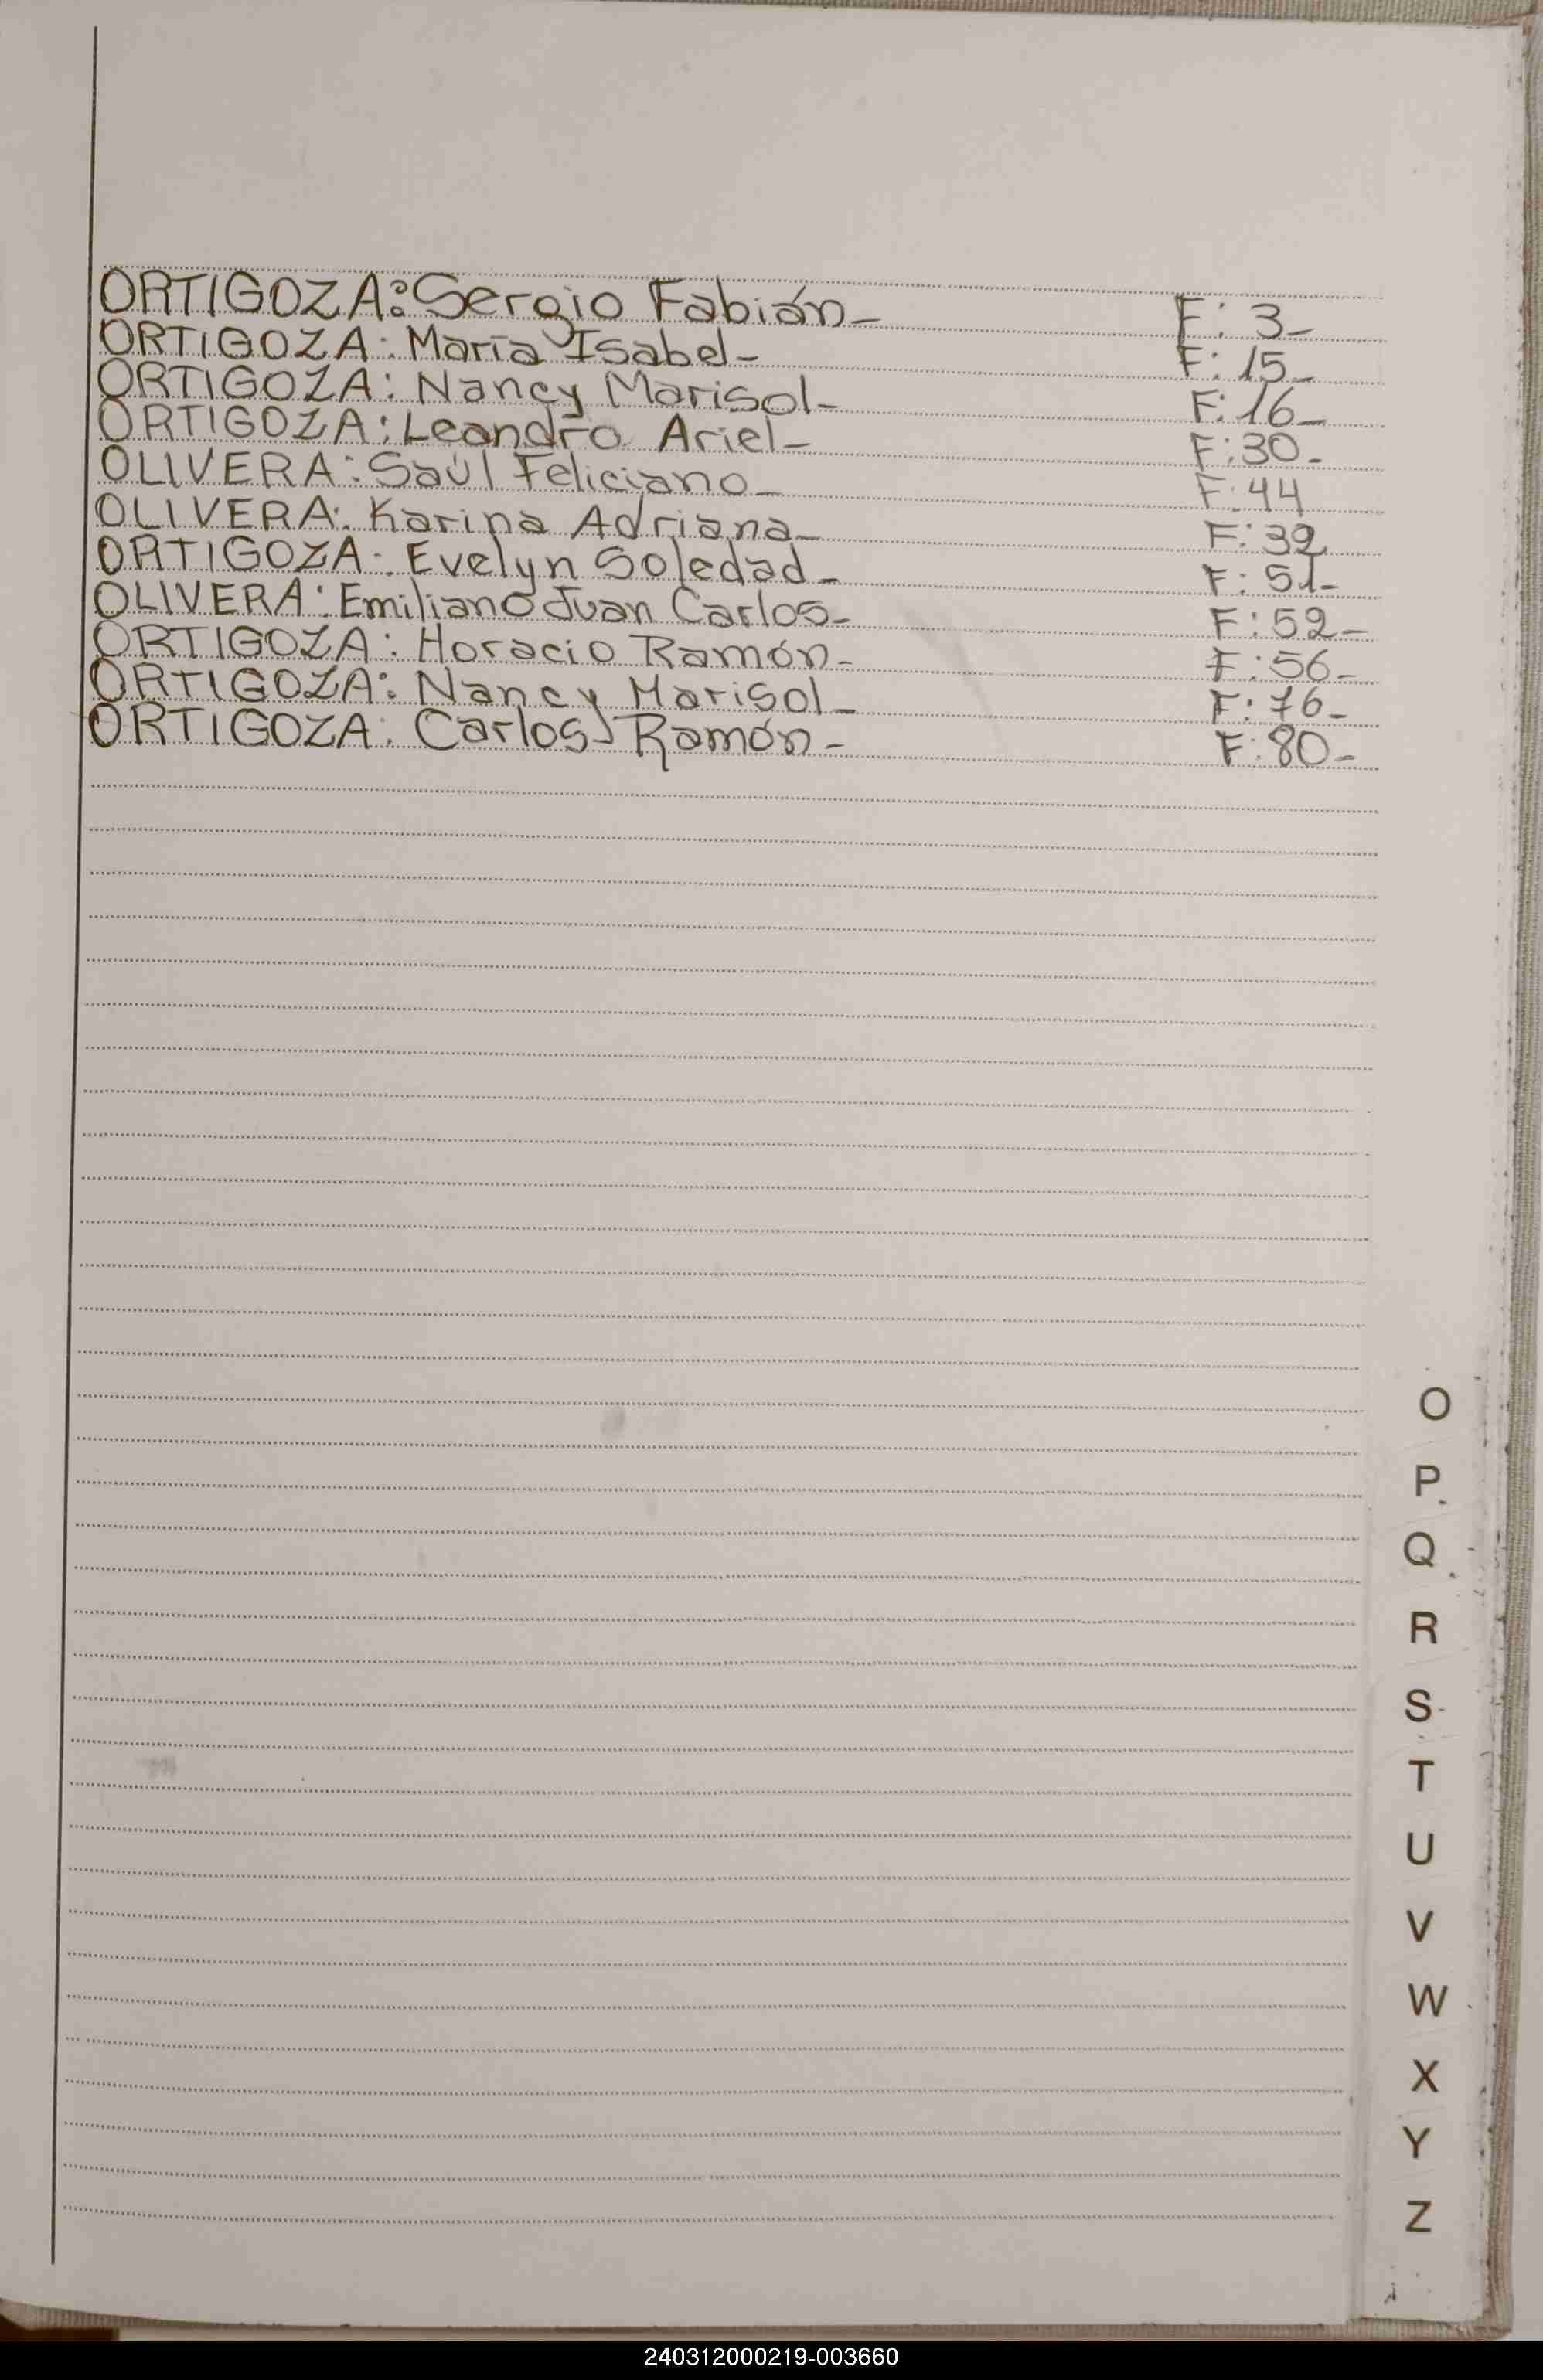 ORTIGOZA: Sergio Fabián- F: 3-
ORTIGOZA: María Isabel- F: 15-
ORTIGOZA: Nancy Marisol- F: 16-
ORTIGOZA: Leandro Ariel- F: 30-
OLIVERA: Saúl Feliciano- F: 44
OLIVERA: Karina Adriana- F: 39
ORTIGOZA: Evelyn Soledad- F: 51-
OLIVERA: Emiliano Juan Carlos- F: 52-
ORTIGOZA: Horacio Ramón- F: 56-
ORTIGOZA: Nancy Marisol- F: 76-
ORTIGOZA: Carlos Ramón- F: 80-
O
P
Q
R
S
T
U
V
W
X
Y
Z
240312000219-003660